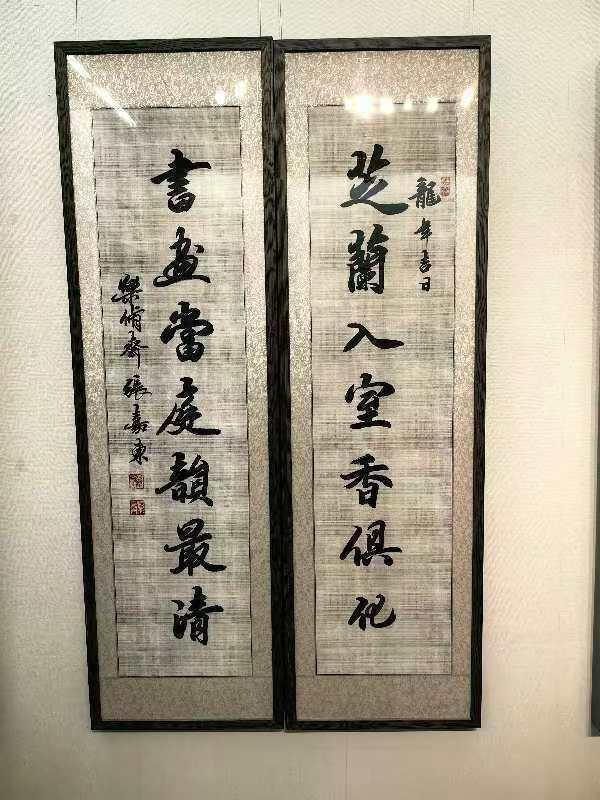 龍年吉日
芝蘭入室香俱化
書畫當庭韻最清
樂脩齋張嘉東